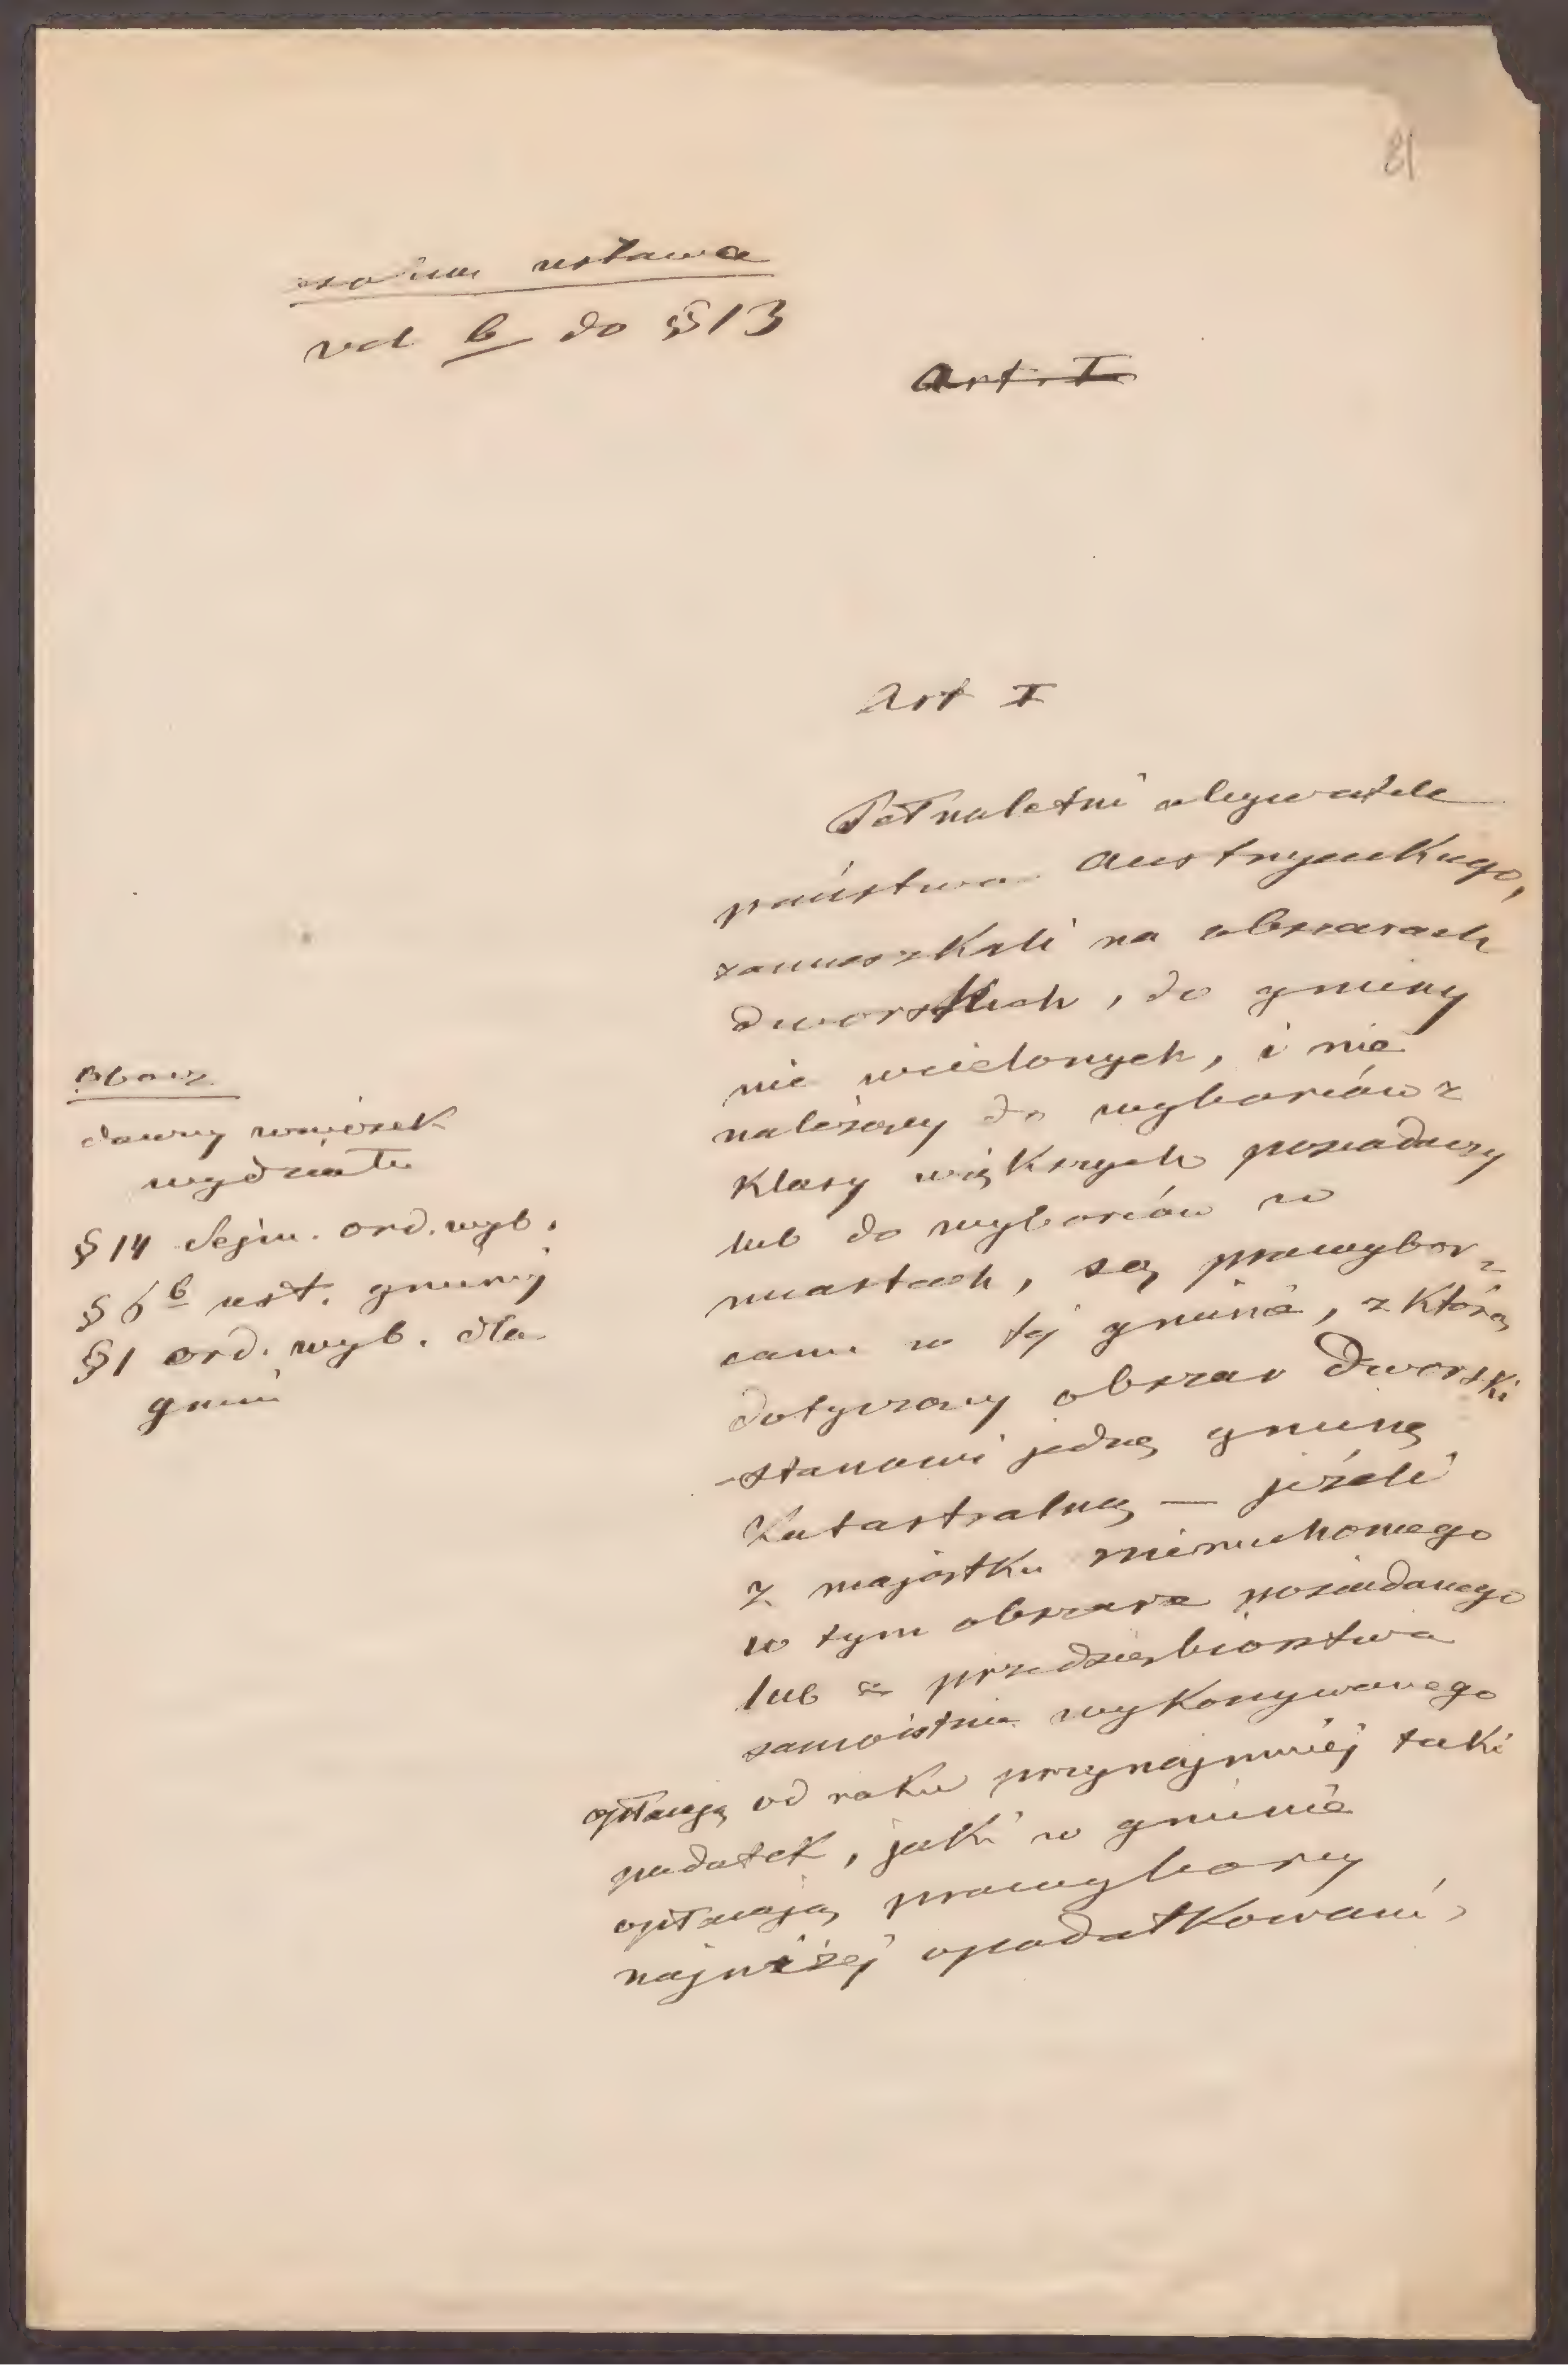 81
ustawa
ad b do §13
Art. I
Art I
Pełnoletni obywatele
państwa austryackiego,
zamieszkali na obszarach
dworskich, do gminy
nie wcielonych, i nie
należący do wyborców z
klasy większych posiadaczy
lub do wyborców w
miastach, są prawybor-
cami w tej gminie, z którą
dotyczący obszar dworski
stanowi jedną gminę
katastralną — jeżeli
z majątku nieruchomego
w tym obszarze posiadanego
lub z przedsiębiorstwa
samoistnie wykonywanego
opłacają od roku przynajmniej taki
podatek, jaki w gminie
opłacają prawyborcy
najniżej opodatkowani,
Obacz
dawny wniosek
wydziału
§ 14 Sejm. ord. wyb.
§ 6 b ust. gminnej
§ 1 ord. wyb. dla
gmin